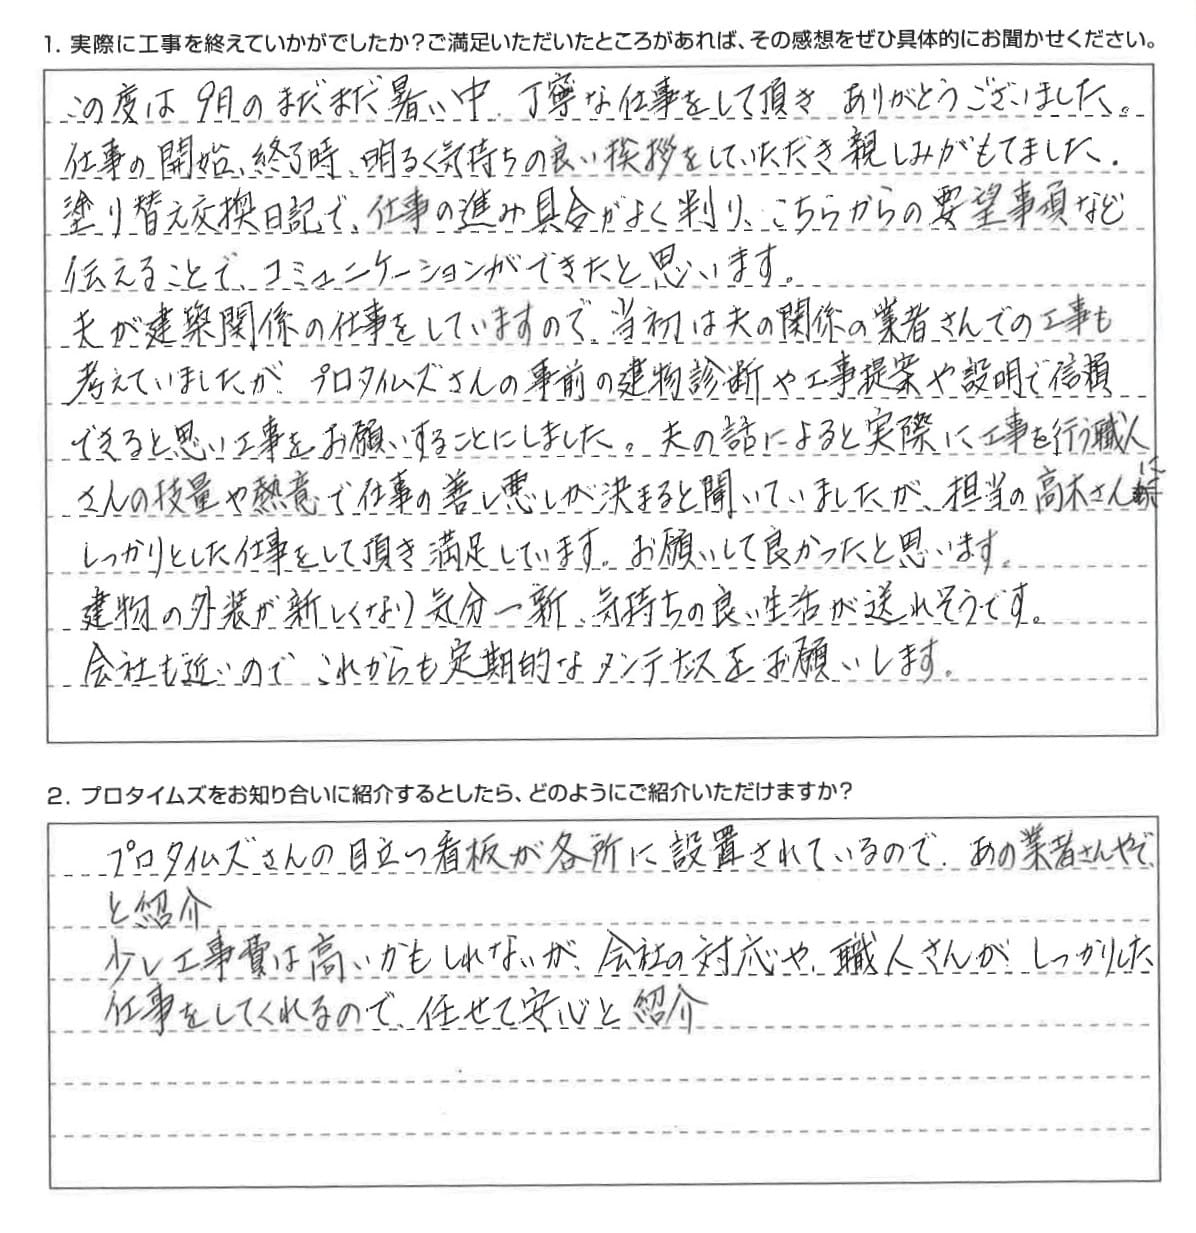 1. 実際に工事を終えていかがでしたか?ご満足いただいたところがあれば、その感想をぜひ具体的にお聞かせください。
この度は9月のまだまだ暑い中、丁寧な仕事をして頂き ありがとうございました。
仕事の開始、終了時、明るく気持ちの良い挨拶をしていただき親しみがもてました。
塗り替え交換日記で、仕事の進み具合がよく判り、こちらからの要望事項など
伝えることで、コミュニケーションができたと思います。
夫が建築関係の仕事をしていますので、当初は夫の関係の業者さんでの工事も
考えていましたが、プロタイムズさんの事前の建物診断や工事提案や説明で信頼
できると思い工事をお願いすることにしました。夫の話によると実際に工事を行う職人
さんの技量や熱意で仕事の善し悪しが決まると聞いていましたが、担当の高木さんに
しっかりとした仕事をして頂き満足しています。お願いして良かったと思います。
建物の外装が新しくなり気分一新、気持ちの良い生活が送れそうです。
会社も近いので これからも定期的なメンテナスをお願いします。
2. プロタイムズをお知り合いに紹介するとしたら、どのようにご紹介いただけますか?
プロタイムズさんの目立つ看板が各所に設置されているので、あの業者さんやで、
と紹介
少し工事費は高いかもしれないが、会社の対応や、職人さんが しっかりした
仕事をしてくれるので、任せて安心と紹介